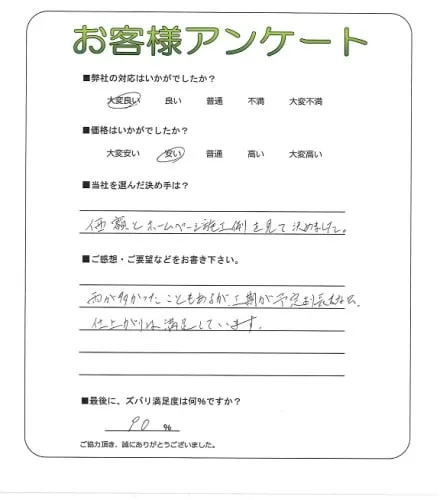 お客様アンケート
■弊社の対応はいかがでしたか？
大変良い 良い 普通 不満 大変不満
■価格はいかがでしたか？
大変安い 安い 普通 高い 大変高い
■当社を選んだ決め手は？
価額とホームページ施工例を見て決めました。
■ご感想・ご要望などをお書き下さい。
雨が多かったこともあるが、工期が予定より長すぎる。
仕上がりは満足しています。
■最後に、ズバリ満足度は何%ですか？
90 %
ご協力頂き、誠にありがとうございました。